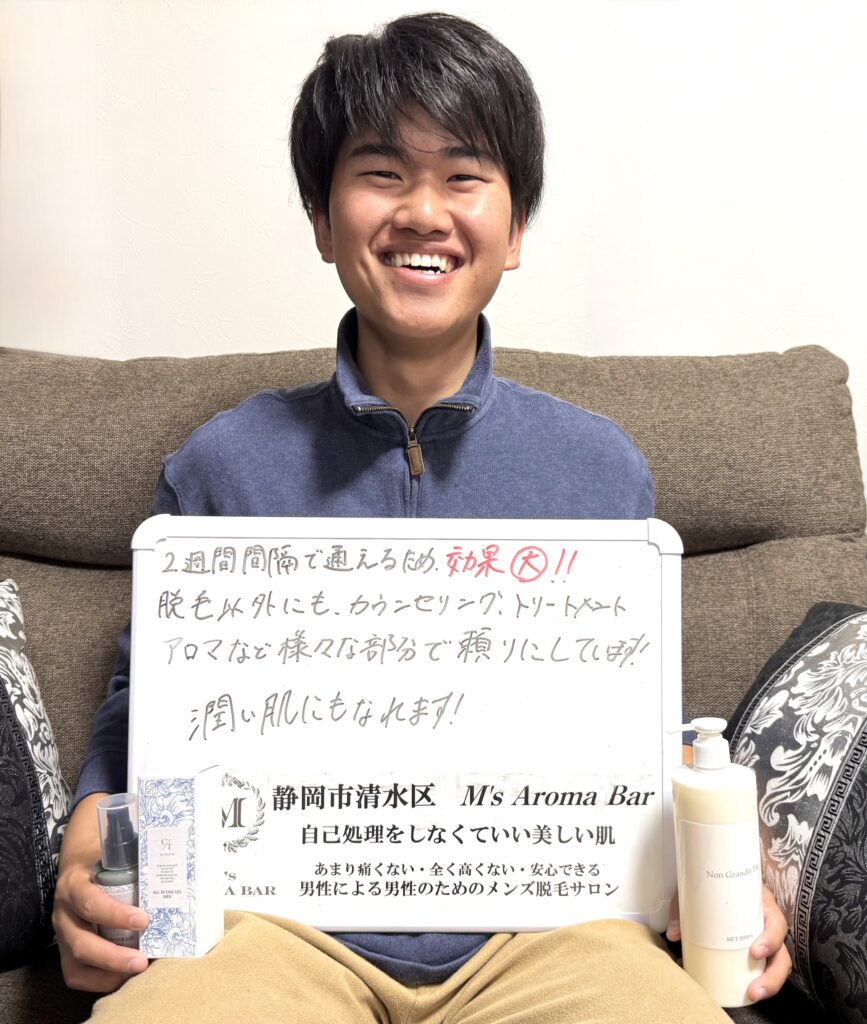 2週間間隔で通えるため、効果大!!
脱毛以外にも、カウンセリング、トリートメント
アロマなど様々な部分で頼りにしています!
潤い肌にもなれます!
M
静岡市清水区 M's Aroma Bar
自己処理をしなくていい美しい肌
あまり痛くない・全く高くない・安心できる
男性による男性のためのメンズ脱毛サロン
BAR
ALL IN ONE GEL
MEN
Non Grandir
NET.